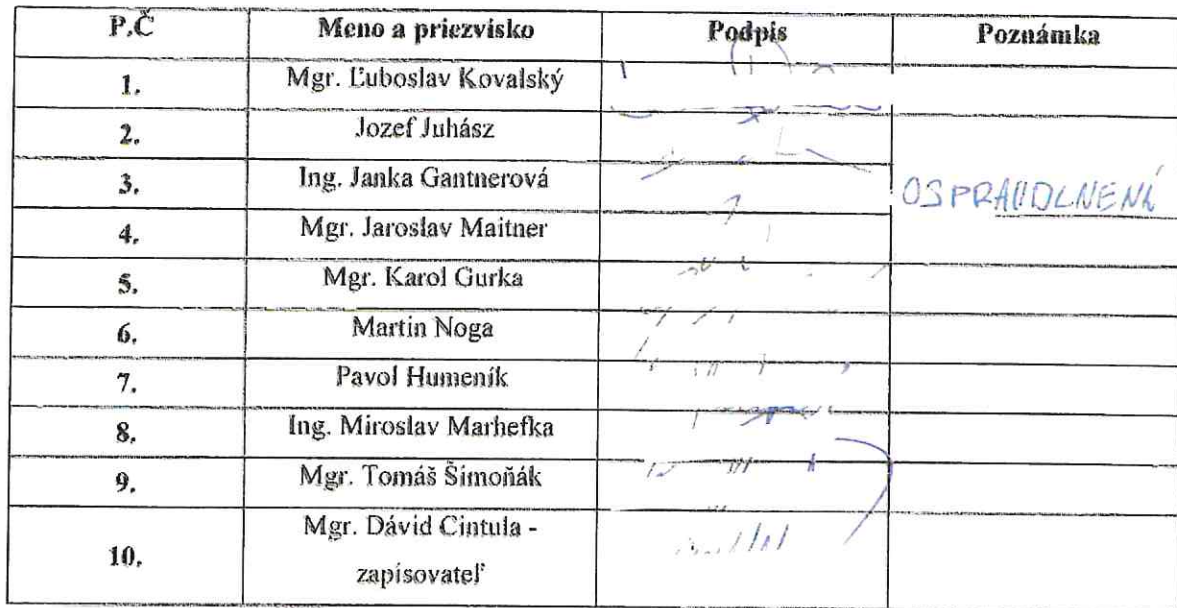 P.Č Meno a priezvisko Podpis Poznámka
1. Mgr. Ľuboslav Kovalský
2. Jozef Juhász
3. Ing. Janka Gantnerová OSPRAVDLNENÁ
4. Mgr. Jaroslav Maitner
5. Mgr. Karol Gurka
6. Martin Noga
7. Pavol Humeník
8. Ing. Miroslav Marhefka
9. Mgr. Tomáš Šimoňák
10. Mgr. Dávid Cintula -
zapisovateľ